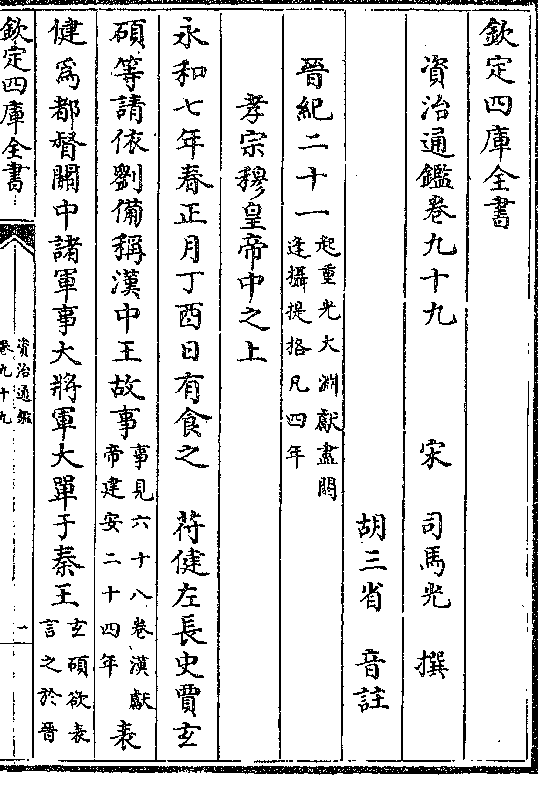 欽定四庫全書
資治通鑑卷九十九
宋 司馬光 撰
胡三省 音註
晉紀二十一起重光大淵獻盡閼逢攝提格凡四年
孝宗穆皇帝中之上
永和七年春正月丁酉日有食之 苻健左長史賈玄
碩等請依劉備稱漢中王故事事見六十八卷漢獻帝建安二十四年表
健爲都督關中諸軍事大將軍大單于秦王玄碩欲表言之於晉
欽定四庫全書
資治通鑑
卷九十九
一